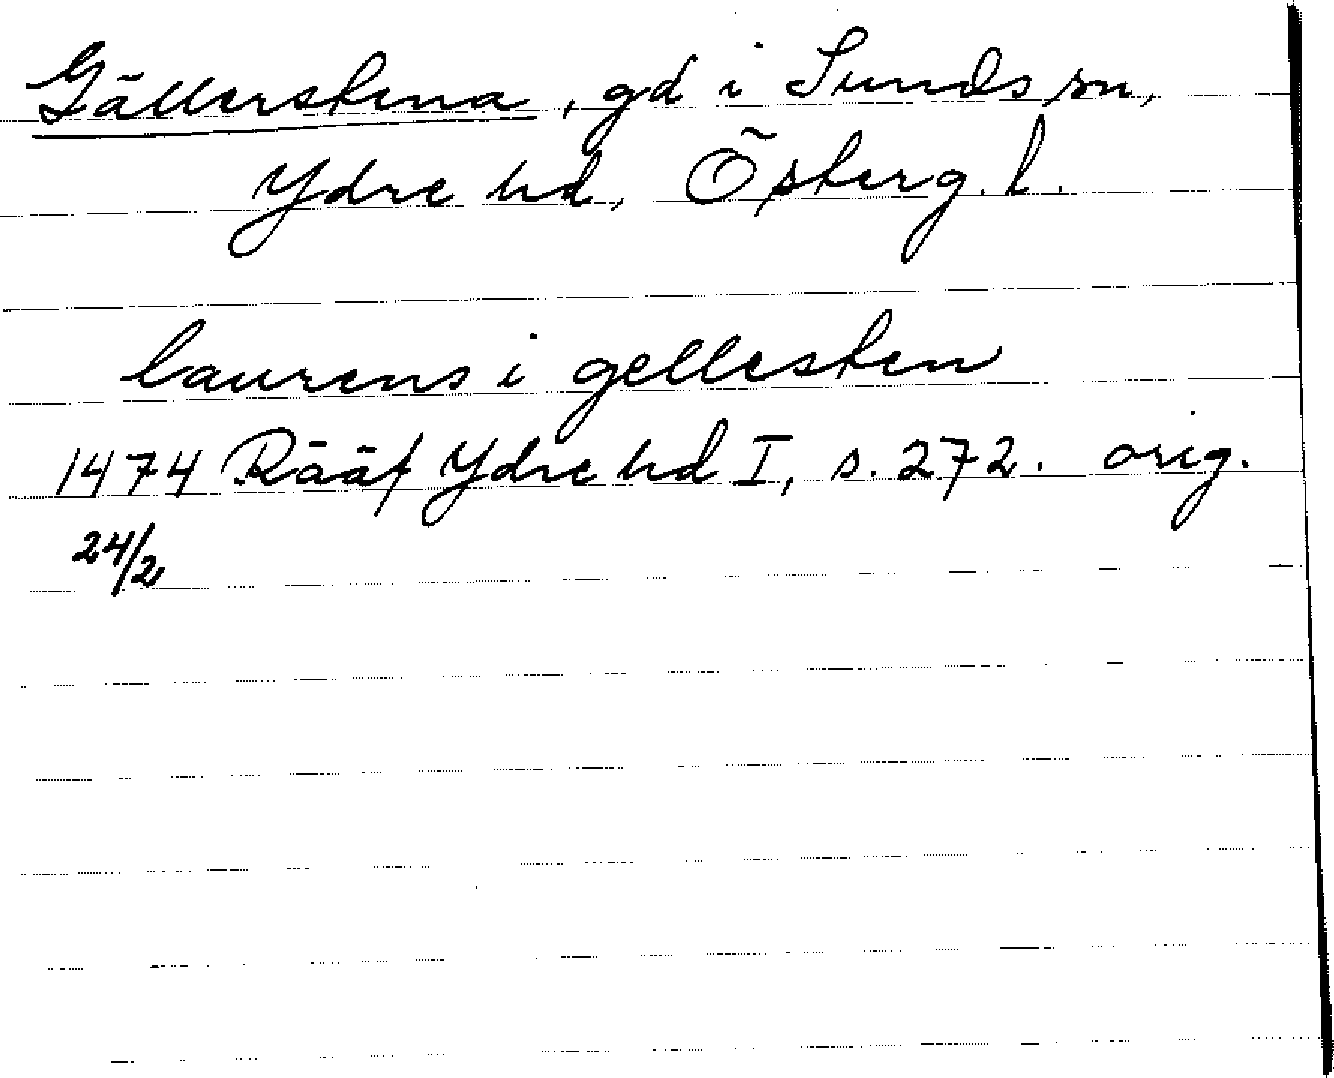 Gällerstena, gd i Sunds sn,
Ydre hd, Österg. l.
laurens i gellesten
1474 Rääf Ydre hd I, s. 272. orig.
24/2